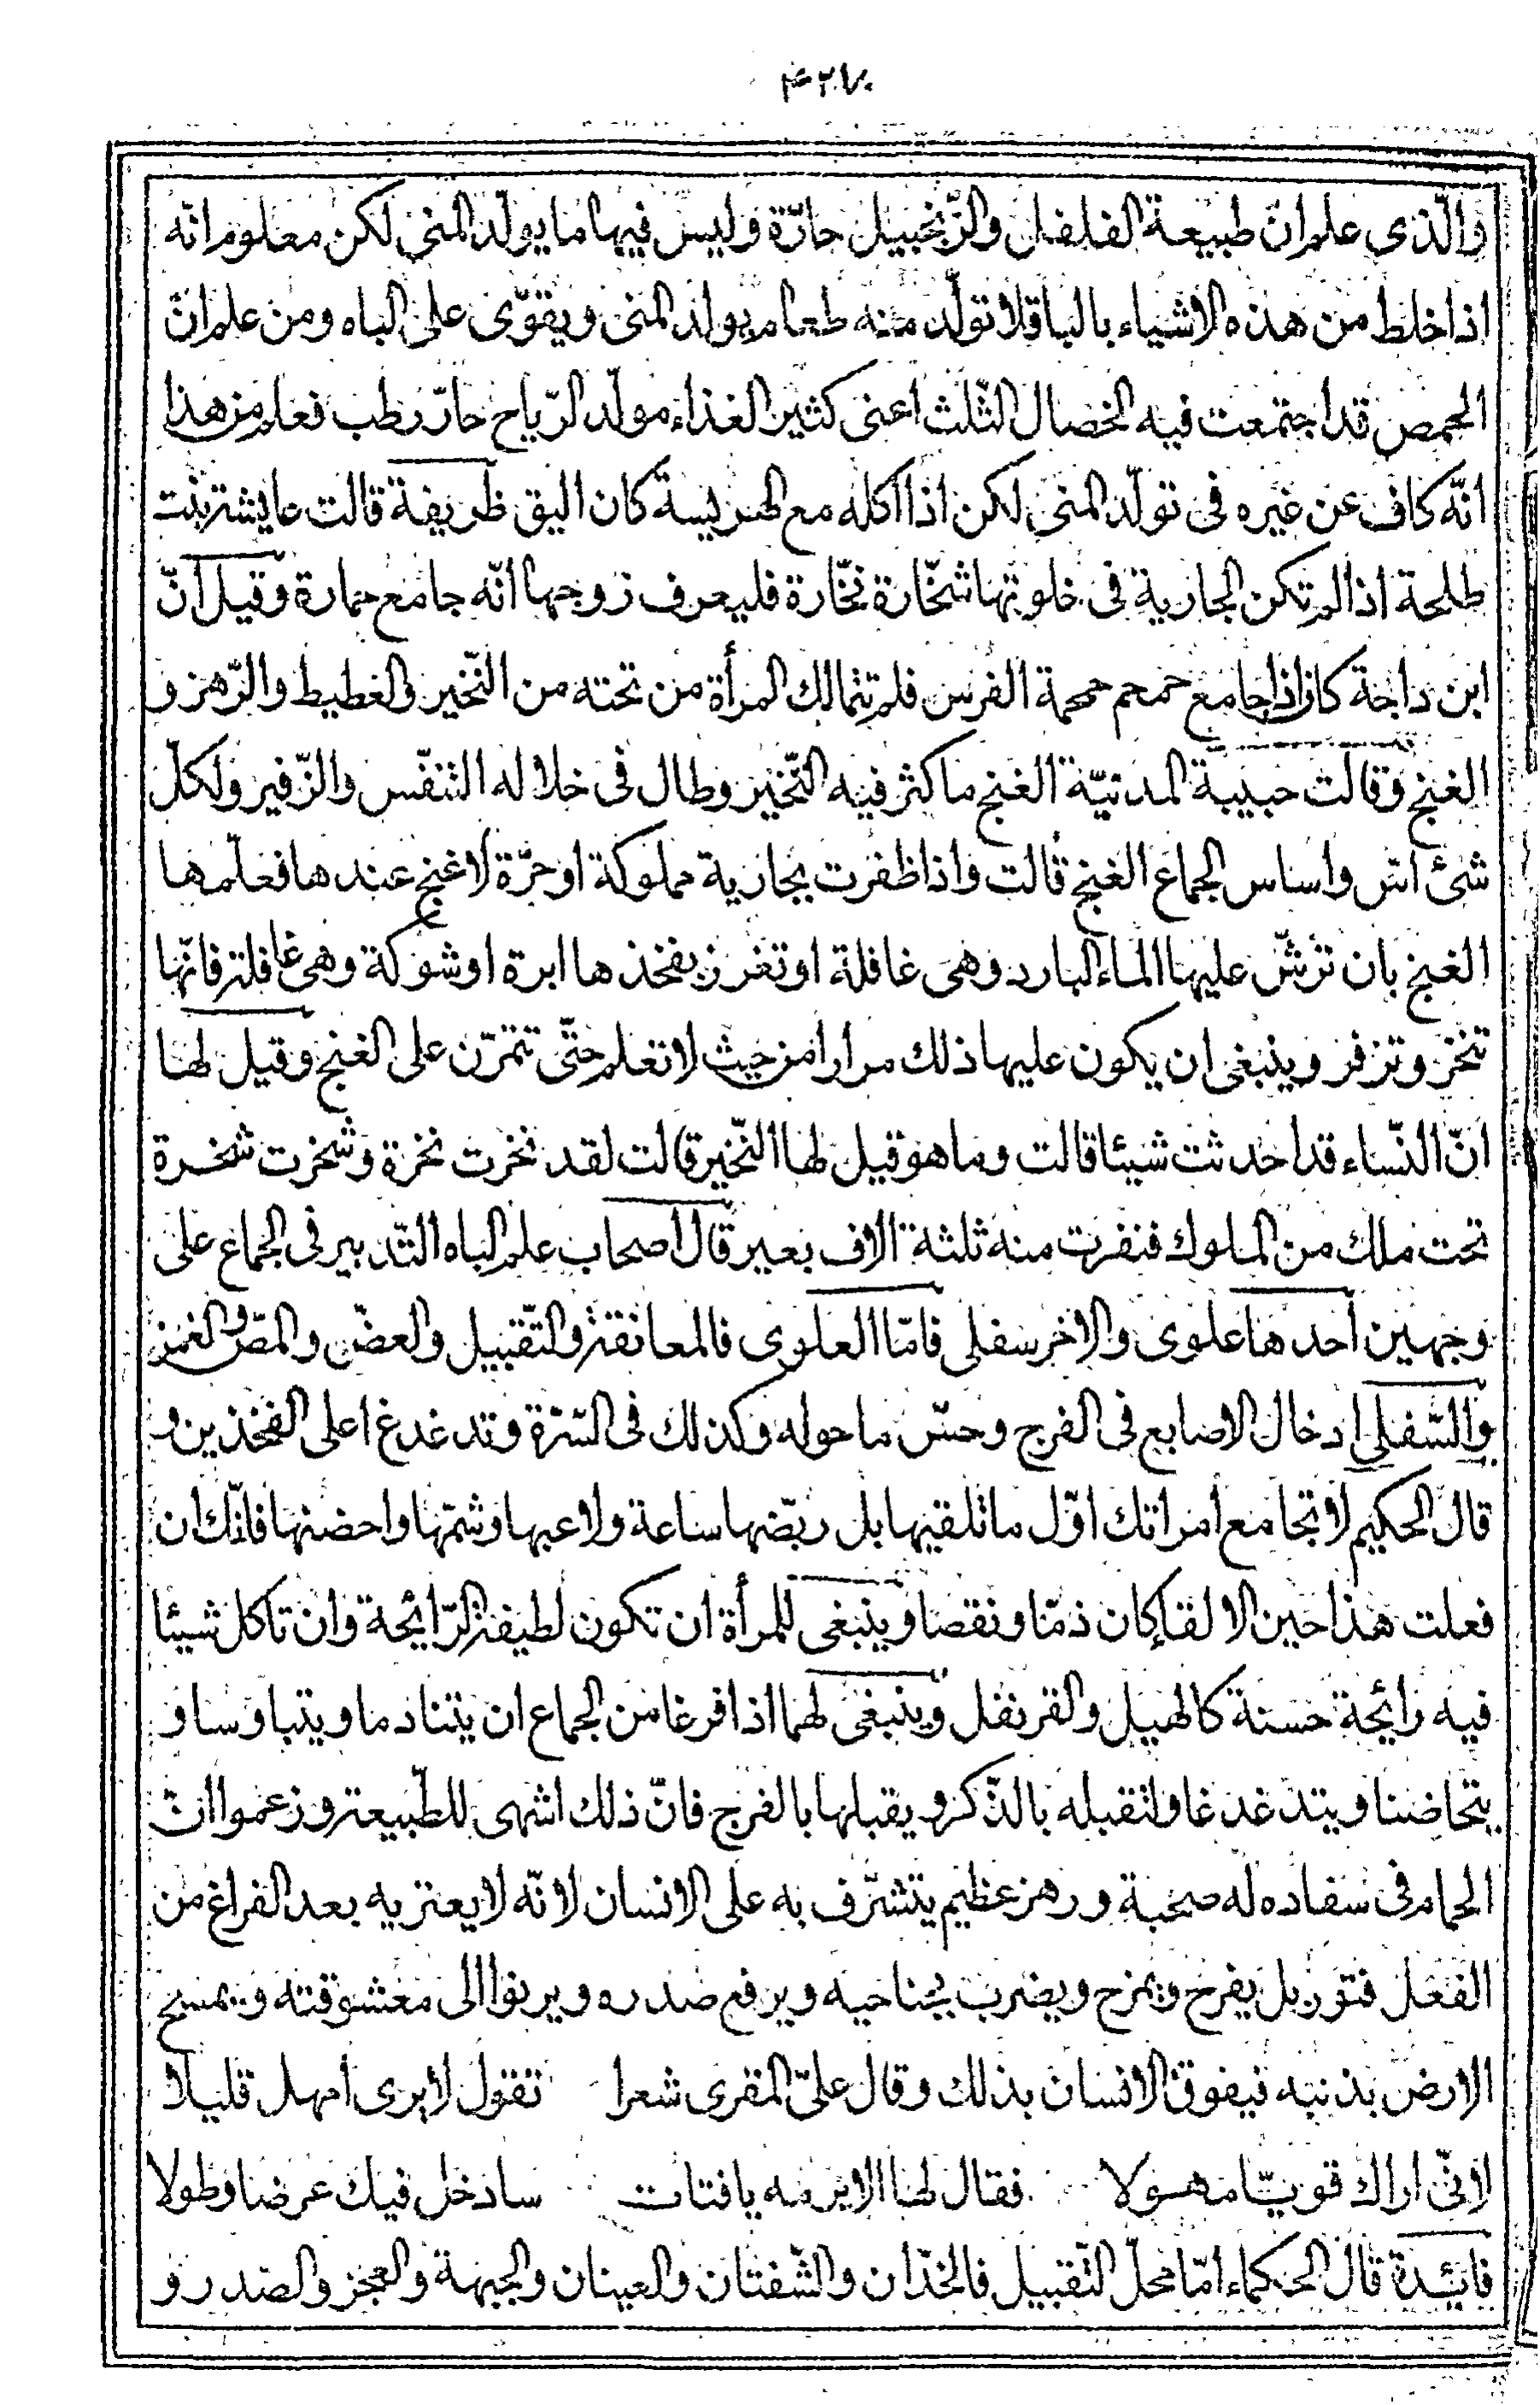 ٤٢٧
والّذى علم انّ طبيعة الفلفل والزّنجبيل حارّة وليس فيها ما يولّد المنى لكن معلوم انّه
اذا خلط من هذه الاشياء بالباقلا تولّد منه طعام يولد المنى ويقوّى على الباه ومن علم انّ
الحمص قد اجتمعت فيه الخصال الثّلث اعنى كثير الغذاء مولّد الرّياح حارّ رطب فعلم من هذا
انّه كاف عن غيره فى تولّد المنى لكن اذا اكله مع الهريسة كان اليق ظريفة قالت عايشة بنت
طلحة اذا لم تكن الجارية فى خلوتها شخّارة نخّارة فليعرف زوجها انّه جامع حمارة وقيل انّ
ابن داجة كان اذا جامع حمحم حمحمة الفرس فلم تتمالك المرأة من تحته من النّخير والغطيط والرّهز و
الغنج وقالت حبيبة المدنيّة الغنج ما كثر فيه النّخير وطال فى خلاله التنفّس والزّفير ولكلّ
شئ اسّ واساس الجماع الغنج قالت واذا ظفرت بجارية مملوكة او حرّة لا غنج عندها فعلّمها
الغنج بان ترشّ عليها الماء البارد وهى غافلة او تغرز بفخذها ابرة او شوكة وهى غافلة فانّها
تنخر وتزفر وينبغى ان يكون عليها ذلك مرارا من حيث لا تعلم حتّى تتمرّن على الغنج وقيل لها
انّ النّساء قد احدثت شيئا قالت وما هو قيل لها النّخير قالت لقد نخرت نخرة وشخرت شخرة
تحت ملك من الملوك فنفرت منه ثلثة الاف بعير قال اصحاب علم الباه التّدبير فى الجماع على
وجهين احدها علوى والاخر سفلى فامّا العلوى فالمعانقة والتّقبيل والعضّ والمصّ والغمز
والسّفلى ادخال الاصابع فى الفرج وحسّ ما حوله وكذلك فى السّرّة وتدغدغ اعلى الفخذين و
قال الحكيم لا تجامع امراتك اوّل ما تلقيها بل ربّضها ساعة ولاعبها وشمّها واحضنها فانّك ان
فعلت هذا حين الالقاء كان ذمّا ونقصا وينبغى للمرأة ان تكون لطيفة الرّائحة وان تاكل شيئا
فيه رائحة حسنة كالهيل والقرنفل وينبغى لهما اذا فرغا من الجماع ان يتنادما ويتباوسا و
يتحاضنا ويتدغدغا ولتقبله بالذّكر ويقبلها بالفرج فانّ ذلك اشهى للطّبيعة وزعموا انّ
الحمام فى سفاده له صحبة ورهز عظيم يتشرّف به على الانسان لانّه لا يعتريه بعد الفراغ من
الفعل فتور بل يفرح ويمزح ويضرب بجناحيه ويرفع صدره ويرنوا الى معشوقته ويمسح
الارض بذنبه فيفوق الانسان بذلك وقال علىّ المقرى شعرا تقول لايرى امهل قليلا
لانّى اراك قويّا مهولا فقال لها الاير مه يا فتات سادخل فيك عرضا وطولا
فايدة قال الحكماء امّا محلّ التّقبيل فالخدّان والشّفتان والعينان والجبهة والعجز والصّدر و